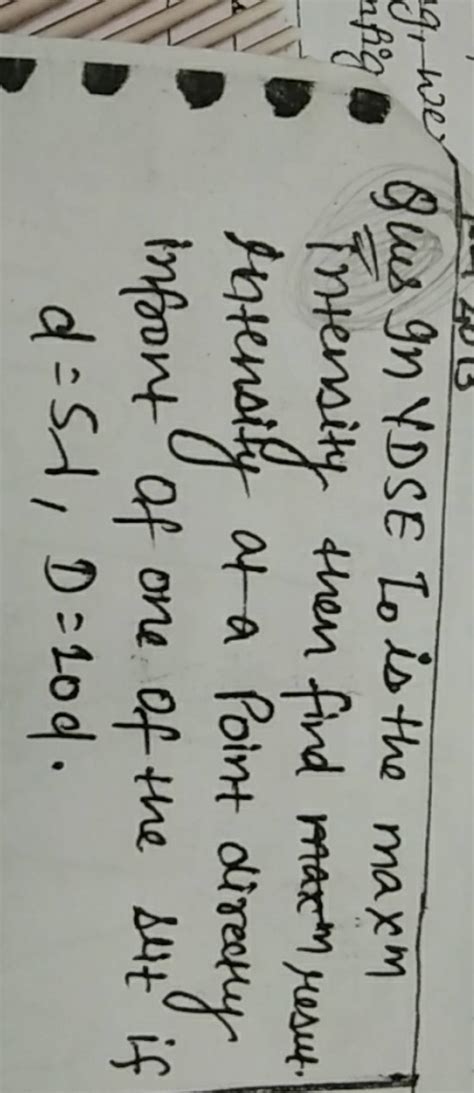 g, we
nfig
2013
Ques In YDSE I₀ is the maxᵐ
intensity then find result.
intensity at a Point directly
infront of one of the slit if
d = 5λ, D = 10d.